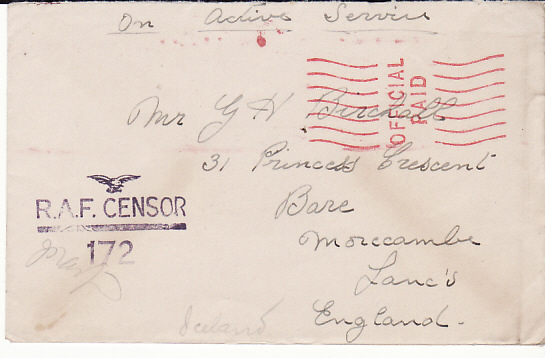 On Active Service
OFFICIAL
PAID
Mr G H Birchall
31 Princess Crescent
Bare
Morecambe
Lanc's
England.
R.A.F. CENSOR
172
Iceland